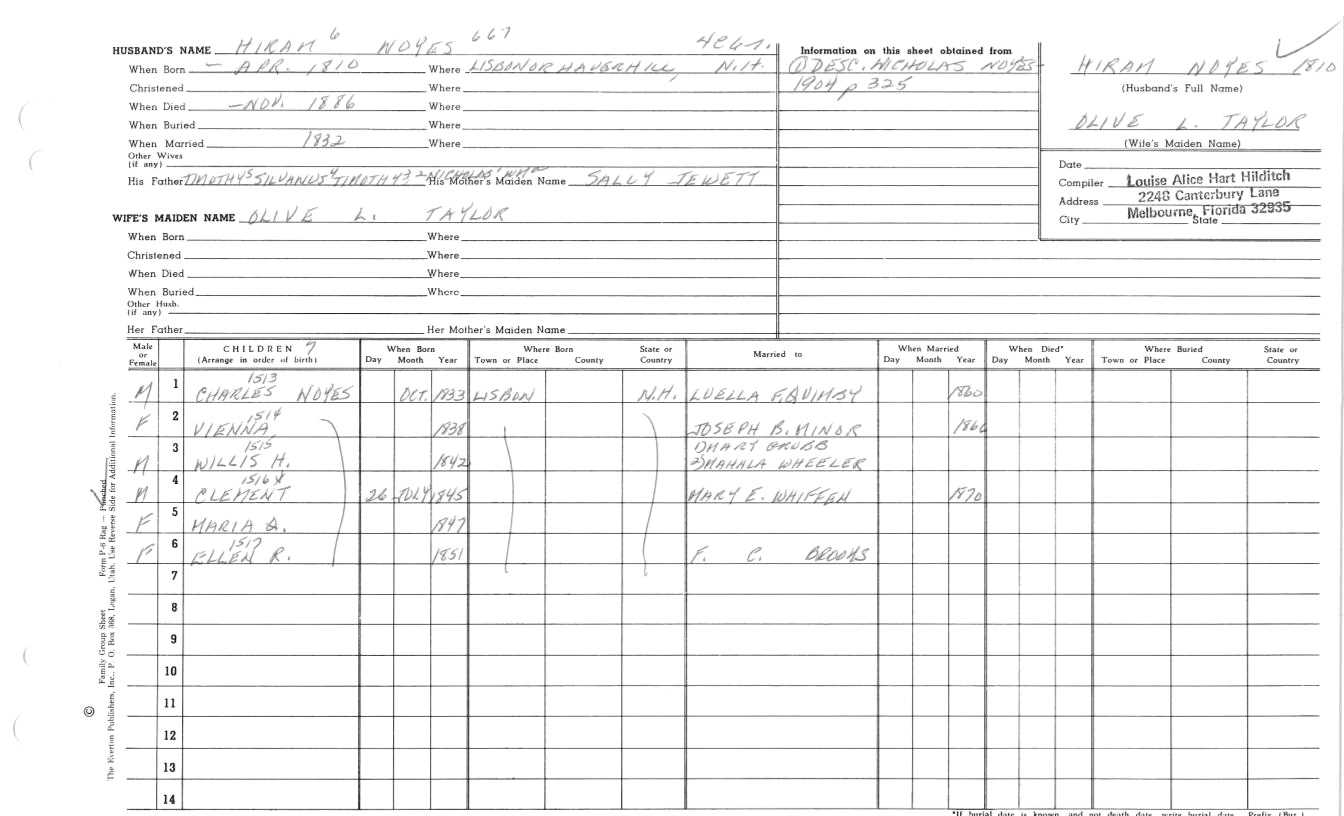 HUSBAND'S NAME HIRAM 6 NOYES 667 4ch.
When Born - APR. 1810 Where LISBON OR HAVERHILL, N.H.
Christened Where
When Died -NOV. 1886 Where
When Buried Where
When Married 1832 Where
Other Wives
(if any)
His Father TIMOTHY5 SILVANUS4 TIMOTHY3 2 NICHOLAS' His Mother's Maiden Name SALLY JEWETT
WIFE'S MAIDEN NAME OLIVE L. TAYLOR
When Born Where
Christened Where
When Died Where
When Buried Where
Other Husb.
(if any)
Her Father Her Mother's Maiden Name
Information on this sheet obtained from
① DESC. NICHOLAS NOYES-
1904 p 325
HIRAM NOYES 1810
(Husband's Full Name)
OLIVE L. TAYLOR
(Wife's Maiden Name)
Date
Compiler Louise Alice Hart Hilditch
Address 2248 Canterbury Lane
City Melbourne, Florida 32935 State
Male or Female CHILDREN 7 (Arrange in order of birth) When Born Day Month Year Where Born Town or Place County State or Country Married to When Married Day Month Year When Died* Day Month Year Where Buried Town or Place County State or Country
M 1 1513 CHARLES NOYES OCT. 1833 LISBON N.H. LUELLA F. QUIMBY 1860
F 2 1514 VIENNA 1838 JOSEPH B. MINOR
M 3 1515 WILLIS H. 1842 1) MARY GRUBB
2) MAHALA WHEELER
M 4 1516 x CLEMENT 26 JULY 1845 MARY E. WHIFFEN 1870
F 5 MARIA A. 1847
F 6 1517 ELLEN R. 1851 F. C. BROOKS
7
8
9
10
11
12
13
14
© Family Group Sheet Form P-6 Rag — Punched
The Everton Publishers, Inc., P. O. Box 368, Logan, Utah. Use Reverse Side for Additional Information.
*If burial date is known, and not death date, write burial date. Prefix (Bur.)